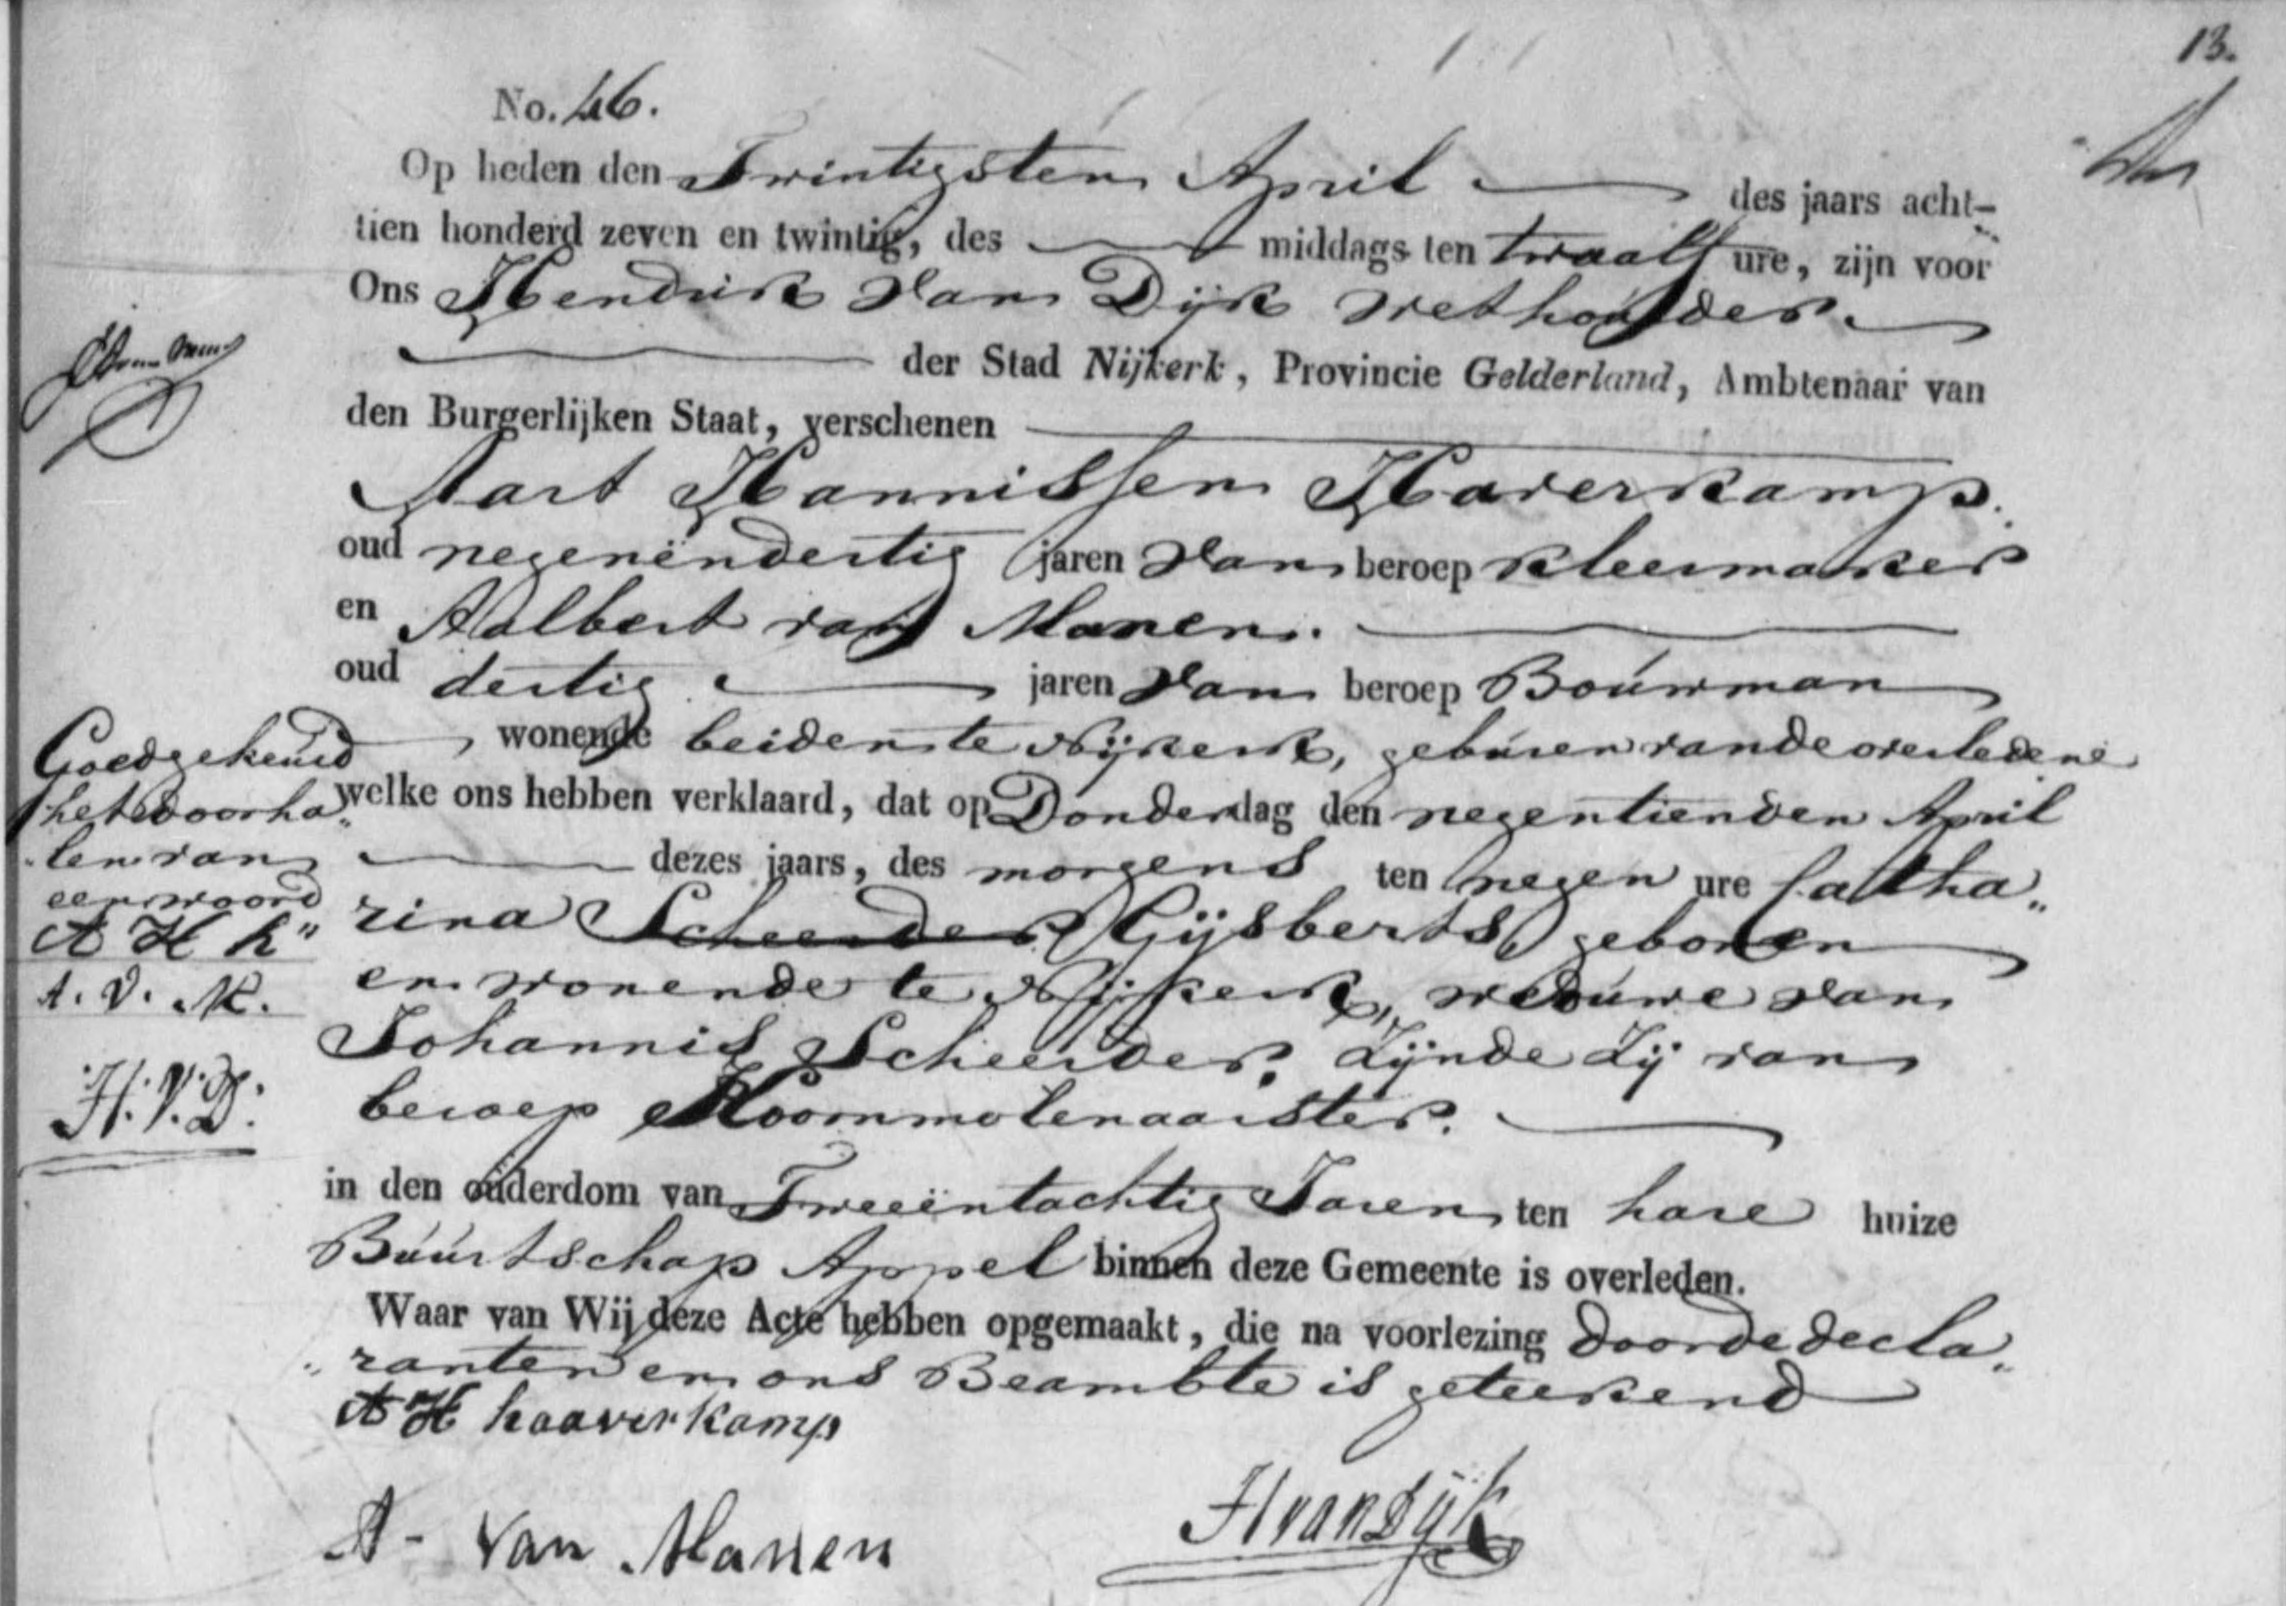 13.
No. 46.
Op heden den Twintigsten April des jaars acht-
tien honderd zeven en twintig, des middags ten twaalf ure, zijn voor
Ons Hendrik van Dijk Wethouder
der Stad Nijkerk, Provincie Gelderland, Ambtenaar van
den Burgerlijken Staat, verschenen
Aart Hannissen Haverkamp.
oud negenëndertig jaren van beroep kleermaker
en Aalbert van Manen.
oud dertig jaren van beroep Bouwman
wonende beiden te Nijkerk, geburen van de overledene
welke ons hebben verklaard, dat op Donderdag den negentienden April
dezes jaars, des morgens ten negen ure Catha„
rina Scheerder Gijsberts geboren
en wonende te Nijkerk, weduwe van
Johannis Scheerder. Zijnde Zij van
beroep Koornmolenaarster.
in den ouderdom van Tweeëntachtig Jaren ten hare huize
Buurtschap Appel binnen deze Gemeente is overleden.
Waar van Wij deze Acte hebben opgemaakt, die na voorlezing door de decla„
„ranten en ons Beambte is geteekend
A H haaverkamp
A- van Manen
HvanDijk
Goedgekeurd
het doorha„
„len van
een woord
A H h"
A. V. M.
H. V. D.